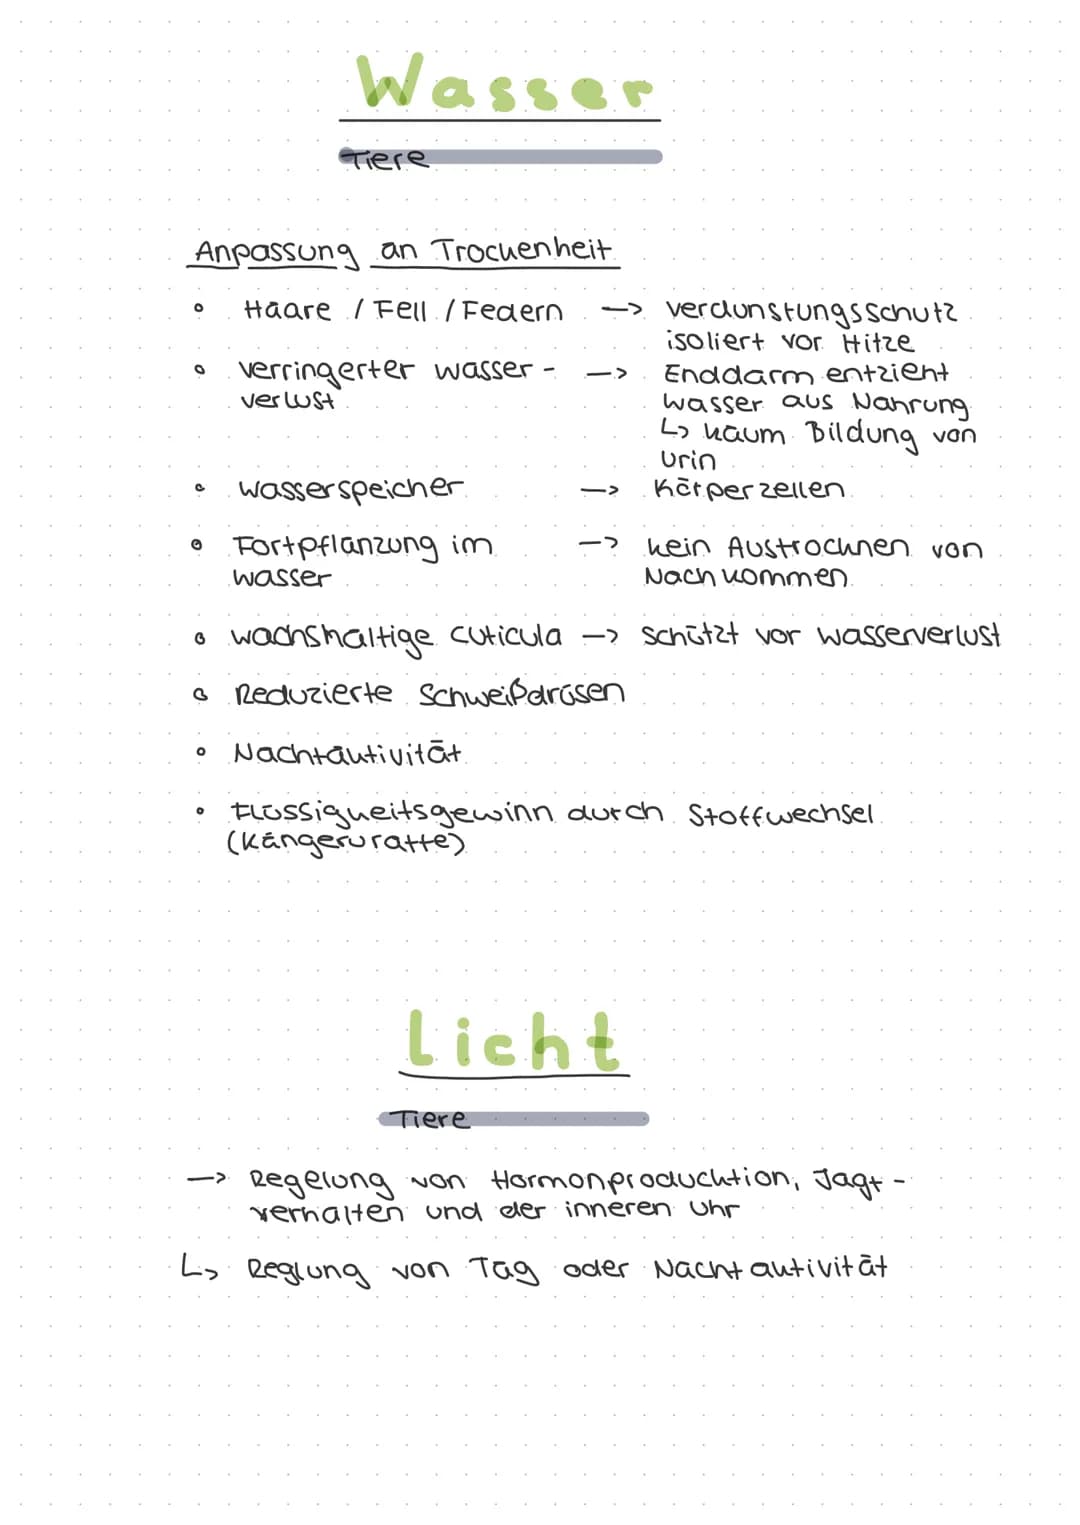 Wasser
Tiere
Anpassung an Trockenheit
Haare / Fell / Federn —> Verdunstungsschutz
isoliert vor Hitze
verringerter Wasser- —> Enddarm entzieht
verlust Wasser aus Nahrung
↳ kaum Bildung von
Urin
Wasserspeicher —> Körperzellen
Fortpflanzung im —> kein Austrocknen von
Wasser Nachkommen
wachshaltige Cuticula —> schützt vor Wasserverlust
Reduzierte Schweißdrüsen
Nachtaktivität
Flüssigkeitsgewinn durch Stoffwechsel
(Kängeruratte)
Licht
Tiere
—> Regelung von Hormonproduchtion, Jagt-
verhalten und der inneren Uhr
↳ Reglung von Tag oder Nachtaktivität